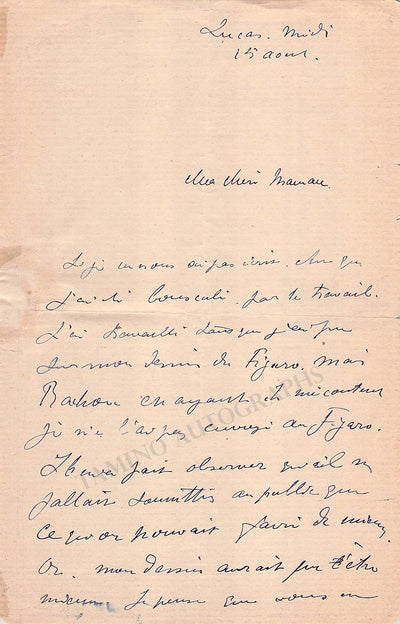 Lucas. Midi
15 aout.
Ma chère Maman.
Si je ne vous ai pas écrit. c'est que
j'ai été bousculé. par le travail.
J'ai travaillé tant que j'ai pu
sur mon dessin du Figaro. mais
Rachou en ayant été mécontent
je ne l'ai pas envoyé au Figaro.
Il m'a fait observer qu'il ne
fallait soumettre au public que
ce qu'on pouvait faire de mieux
Or. mon dessin aurait pu être
mieux. Je pense que vous
TAMINO AUTOGRAPHS